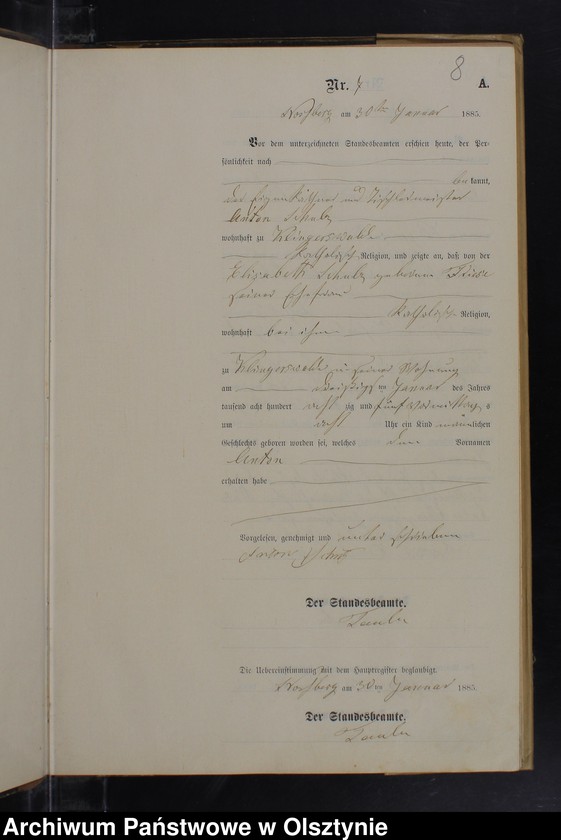 8
Nr. 7 A.
Nossberg am 30ten Januar 1885.
Vor dem unterzeichneten Standesbeamten erschien heute, der Per-
sönlichkeit nach
be kannt,
der Eigenkäthner und Tischlermeister
Anton Schulz
wohnhaft zu Klingerswalde
katholischer Religion, und zeigte an, daß von der
Elisabeth Schulz geborene
seiner Ehefrau
katholischer Religion,
wohnhaft bei ihm
zu Klingerswalde in seiner Wohnung
am dreißigsten Januar des Jahres
tausend acht hundert acht zig und fünf Vormittags
um acht Uhr ein Kind männlichen
Geschlechts geboren worden sei, welches den Vornamen
Anton
erhalten habe
Vorgelesen, genehmigt und unterschrieben
Anton Schulz
Der Standesbeamte.
Die Uebereinstimmung mit dem Hauptregister beglaubigt.
Nossberg am 30ten Januar 1885.
Der Standesbeamte.
Archiwum Państwowe w Olsztynie